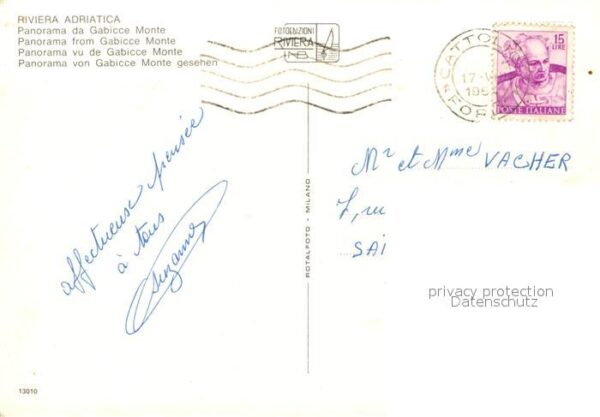 RIVIERA ADRIATICA
Panorama da Gabicce Monte
Panorama from Gabicce Monte
Panorama vu de Gabicce Monte
Panorama von Gabicce Monte gesehen
RIVIERA
15
LIRE
POSTE ITALIANE
CATTOL
17
FOR
affectueuse pensée
à tous
Suzanne
Mr et Mme VACHER
7, ru
SAI
ROTALFOTO - MILANO
privacy protection
Datenschutz
13010